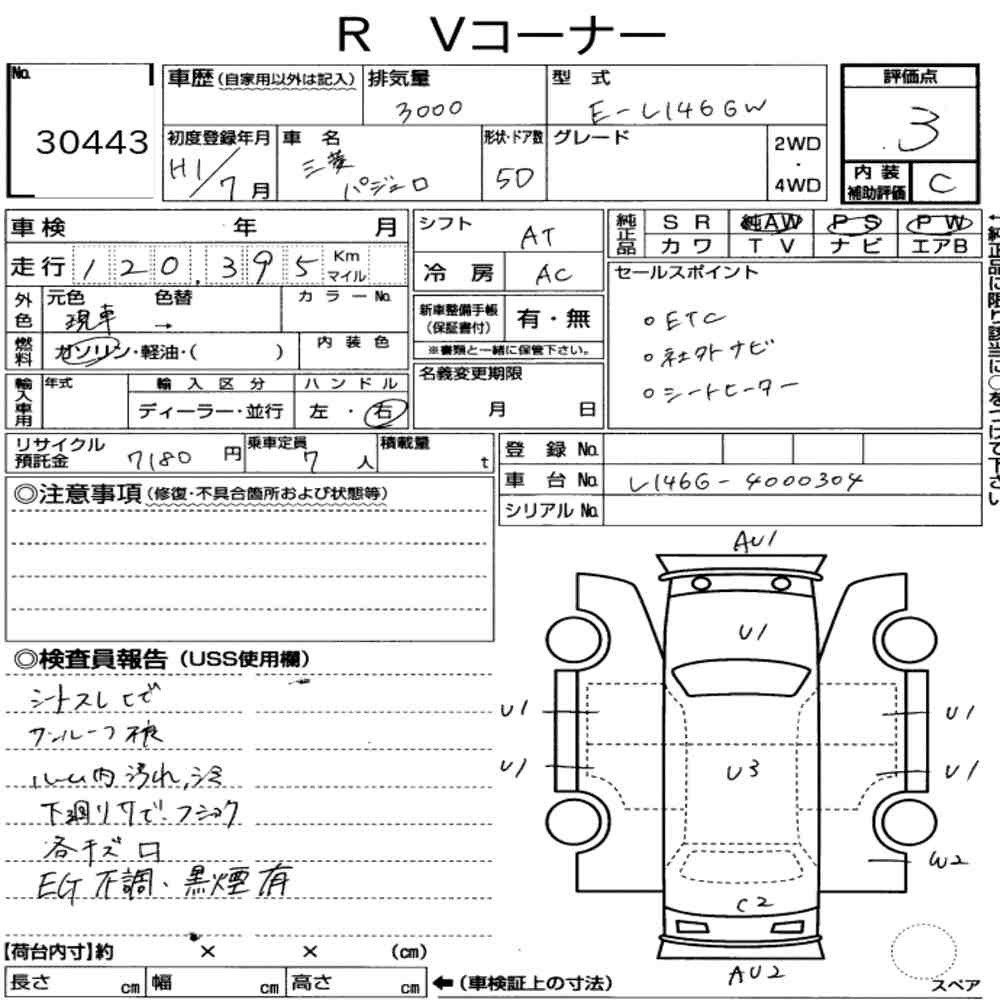 R Vコーナー
No.
30443
車歴(自家用以外は記入)
排気量
3000
型式
E-L146GW
評価点
3
初度登録年月
H1/7月
車名
三菱
パジェロ
形状・ドア数
5D
グレード
2WD
・
4WD
内装
補助評価
C
車検 年 月
シフト
AT
純正品
SR 純AW PS PW
カワ TV ナビ エアB
走行 120,395 Km
マイル
冷房
AC
セールスポイント
○ETC
○社外ナビ
○シートヒーター
←純正品に限り該当に○をつけて下さい
外色
元色 色替
現車 →
カラーNo.
新車整備手帳
(保証書付)
有・無
※書類と一緒に保管下さい。
燃料
ガソリン・軽油・( )
内装色
輸入車用
年式
輸入区分
ディーラー・並行
ハンドル
左・右
名義変更期限
月 日
リサイクル
預託金
7180円
乗車定員
7人
積載量
t
登録No.
車台No.
L146G-4000304
シリアルNo.
◎注意事項(修復・不具合箇所および状態等)
◎検査員報告(USS使用欄)
シートスレ
ルーム内汚れ,シミ
下廻りサビ・フショク
各キズ
EG不調、黒煙有
AU1
U1
U1
U1
U1
U1
U3
W2
C2
AU2
スペア
【荷台内寸】約 × × (cm)
長さ cm 幅 cm 高さ cm ←(車検証上の寸法)